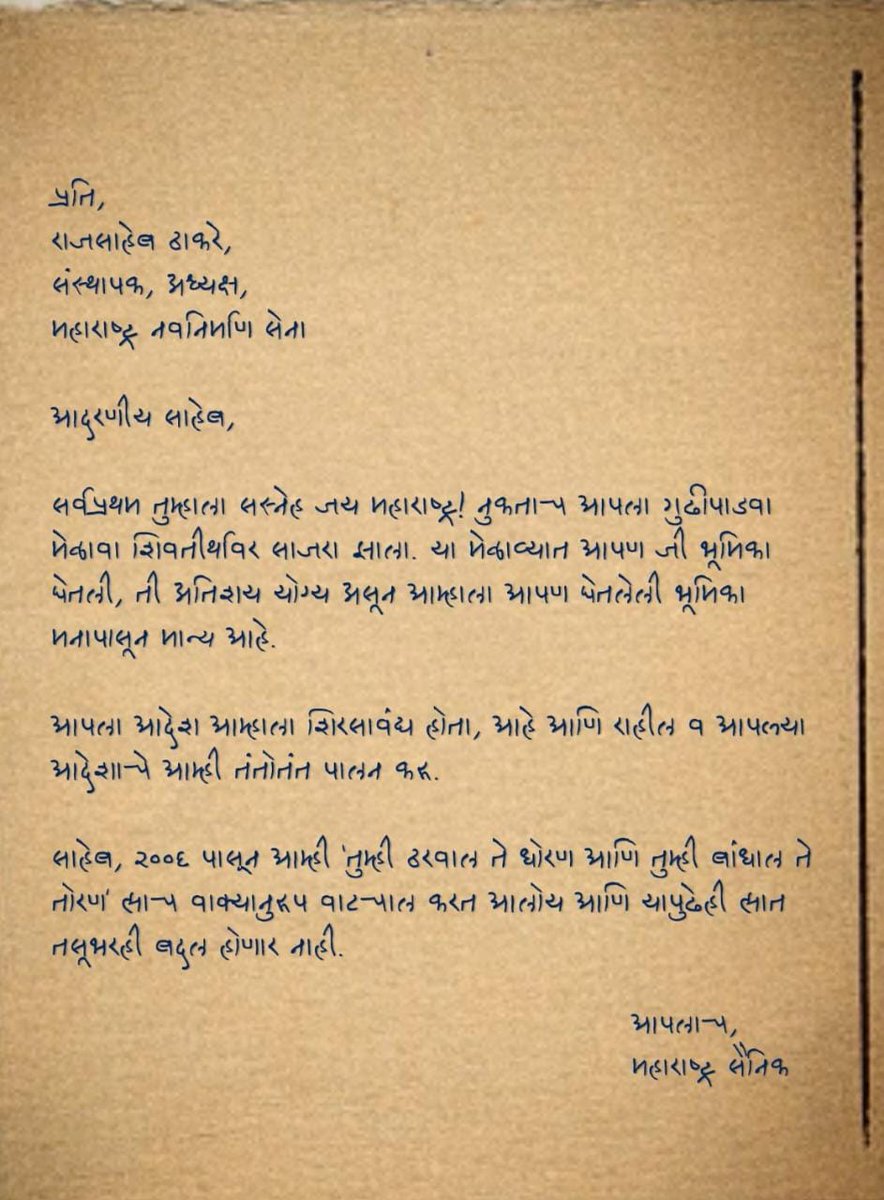 प्रति,
राजसाहेब ठाकरे,
संस्थापक, अध्यक्ष,
महाराष्ट्र नवनिर्माण सेना
आदरणीय साहेब,
सर्वप्रथम तुम्हाला सस्नेह जय महाराष्ट्र! नुकताच आपला गुढीपाडवा
मेळावा शिवतीर्थावर साजरा झाला. या मेळाव्यात आपण जी भूमिका
घेतली, ती अतिशय योग्य असून आम्हाला आपण घेतलेली भूमिका
मनापासून मान्य आहे.
आपला आदेश आम्हाला शिरसावंद्य होता, आहे आणि राहील व आपल्या
आदेशाचे आम्ही तंतोतंत पालन करू.
साहेब, २००६ पासून आम्ही 'तुम्ही ठरवाल ते धोरण आणि तुम्ही बांधाल ते
तोरण' ह्याच वाक्यानुरूप वाटचाल करत आलोय आणि यापुढेही ह्यात
तसूभरही बदल होणार नाही.
आपलाच,
महाराष्ट्र सैनिक